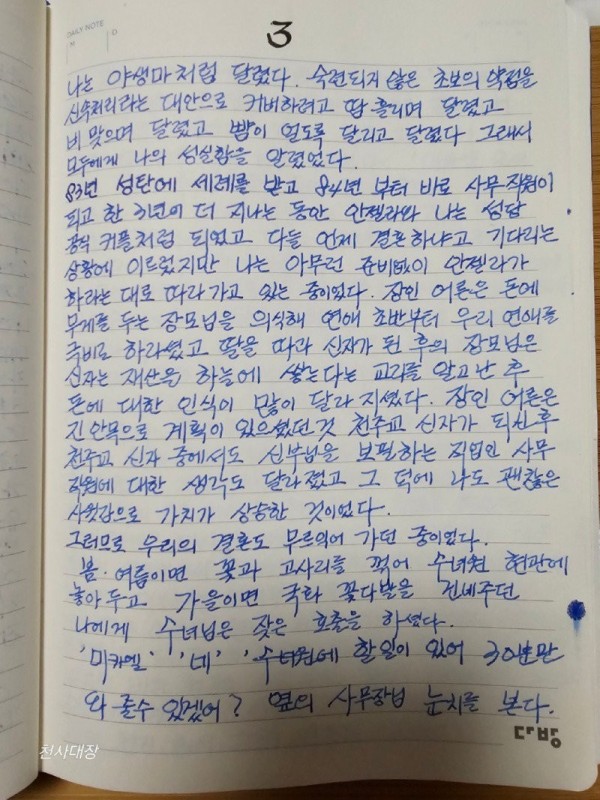 DAILY NOTE
M D
3
나는 야생마처럼 달렸다. 숙련되지 않은 초보의 약점을
신속처리라는 대안으로 커버하려고 땀 흘리며 달렸고
비 맞으며 달렸고 뺨이 얼도록 달리고 달렸다 그래서
모두에게 나의 성실함을 알렸었다.
83년 성탄에 세례를 받고 84년 부터 바로 사무직원이
되고 한 3년이 더 지나는 동안 안젤라와 나는 성당
공식 커플처럼 되었고 다들 언제 결혼하냐고 기다리는
상황에 이르렀지만 나는 아무런 준비없이 안젤라가
하라는 대로 따라가고 있는 중이었다. 장인 어른은 돈에
무게를 두는 장모님을 의식해 연애 초반부터 우리 연애를
극비로 하라셨고 딸을 따라 신자가 된 후의 장모님은
신자는 재산을 하늘에 쌓는다는 교리를 알고 난 후
돈에 대한 인식이 많이 달라지셨다. 장인 어른은
진 안목으로 계획이 있으셨던 것 천주교 신자가 되신 후
천주교 신자 중에서도 신부님을 보필하는 직업인 사무
직원에 대한 생각도 달라졌고 그 덕에 나도 괜찮은
사윗감으로 가치가 상승한 것이었다.
그러므로 우리의 결혼도 무르익어 가던 중이었다.
봄·여름이면 꽃과 고사리를 꺾어 수녀원 현관에
놓아두고 가을이면 국화 꽃다발을 건네주던
나에게 수녀님은 잦은 호출을 하셨다.
'미카엘' '네' '수녀원에 할일이 있어 30분만
와 줄수 있겠어? 옆의 사무장님 눈치를 본다.
다방
천사대장